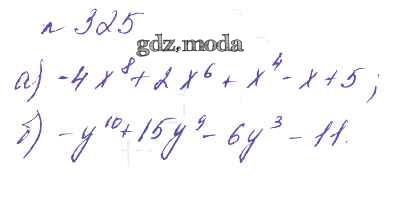 n 325
gdz.moda
а) -4x⁸ + 2x⁶ + x⁴ - x + 5;
б) -y¹⁰ + 15y⁹ - 6y³ - 11.